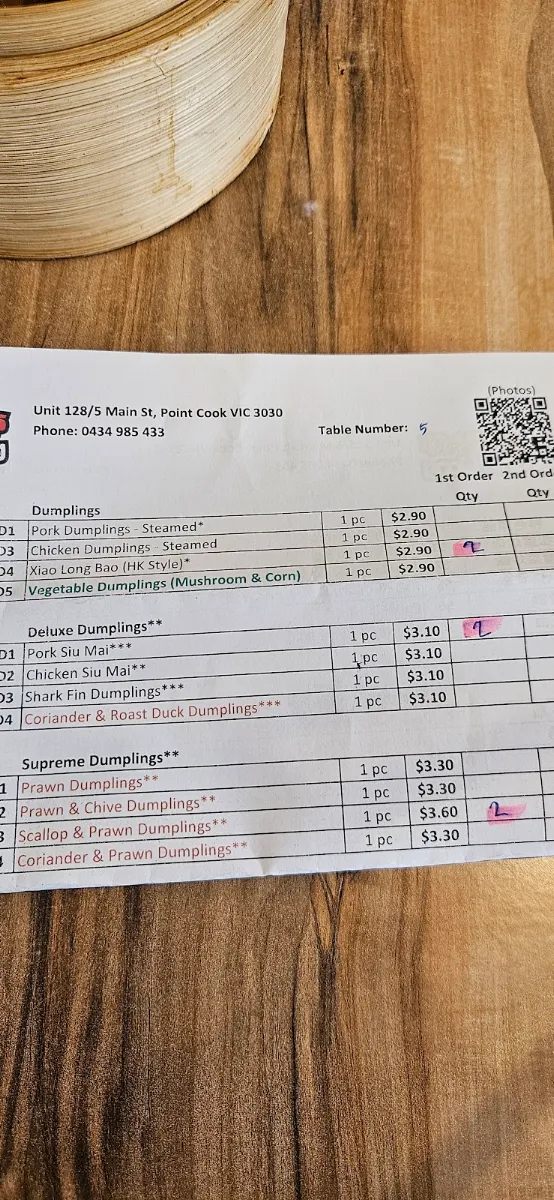 Unit 128/5 Main St, Point Cook VIC 3030
(Photos)
Phone: 0434 985 433
Table Number: 5
1st Order 2nd Ord
Dumplings Qty Qty
D1 Pork Dumplings - Steamed* 1 pc $2.90
D3 Chicken Dumplings - Steamed 1 pc $2.90
D4 Xiao Long Bao (HK Style)* 1 pc $2.90 2
D5 Vegetable Dumplings (Mushroom & Corn) 1 pc $2.90
Deluxe Dumplings**
D1 Pork Siu Mai*** 1 pc $3.10 2
D2 Chicken Siu Mai** 1 pc $3.10
D3 Shark Fin Dumplings*** 1 pc $3.10
D4 Coriander & Roast Duck Dumplings*** 1 pc $3.10
Supreme Dumplings**
1 Prawn Dumplings** 1 pc $3.30
2 Prawn & Chive Dumplings** 1 pc $3.30
3 Scallop & Prawn Dumplings** 1 pc $3.60 2
Coriander & Prawn Dumplings** 1 pc $3.30